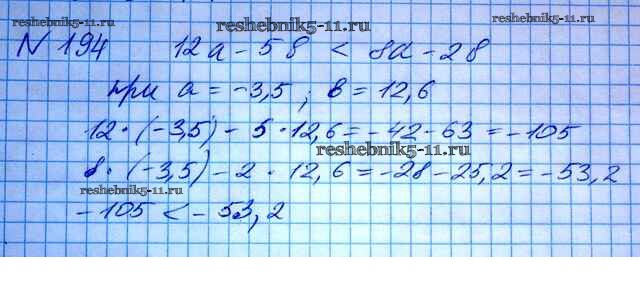 reshebnik5-11.ru reshebnik5-11.ru
N 194 12a - 5в < 8a - 2в
при a = -3,5 ; в = 12,6
12 · (-3,5) - 5 · 12,6 = -42 - 63 = -105
reshebnik5-11.ru
8 · (-3,5) - 2 · 12,6 = -28 - 25,2 = -53,2
reshebnik5-11.ru
-105 < -53,2